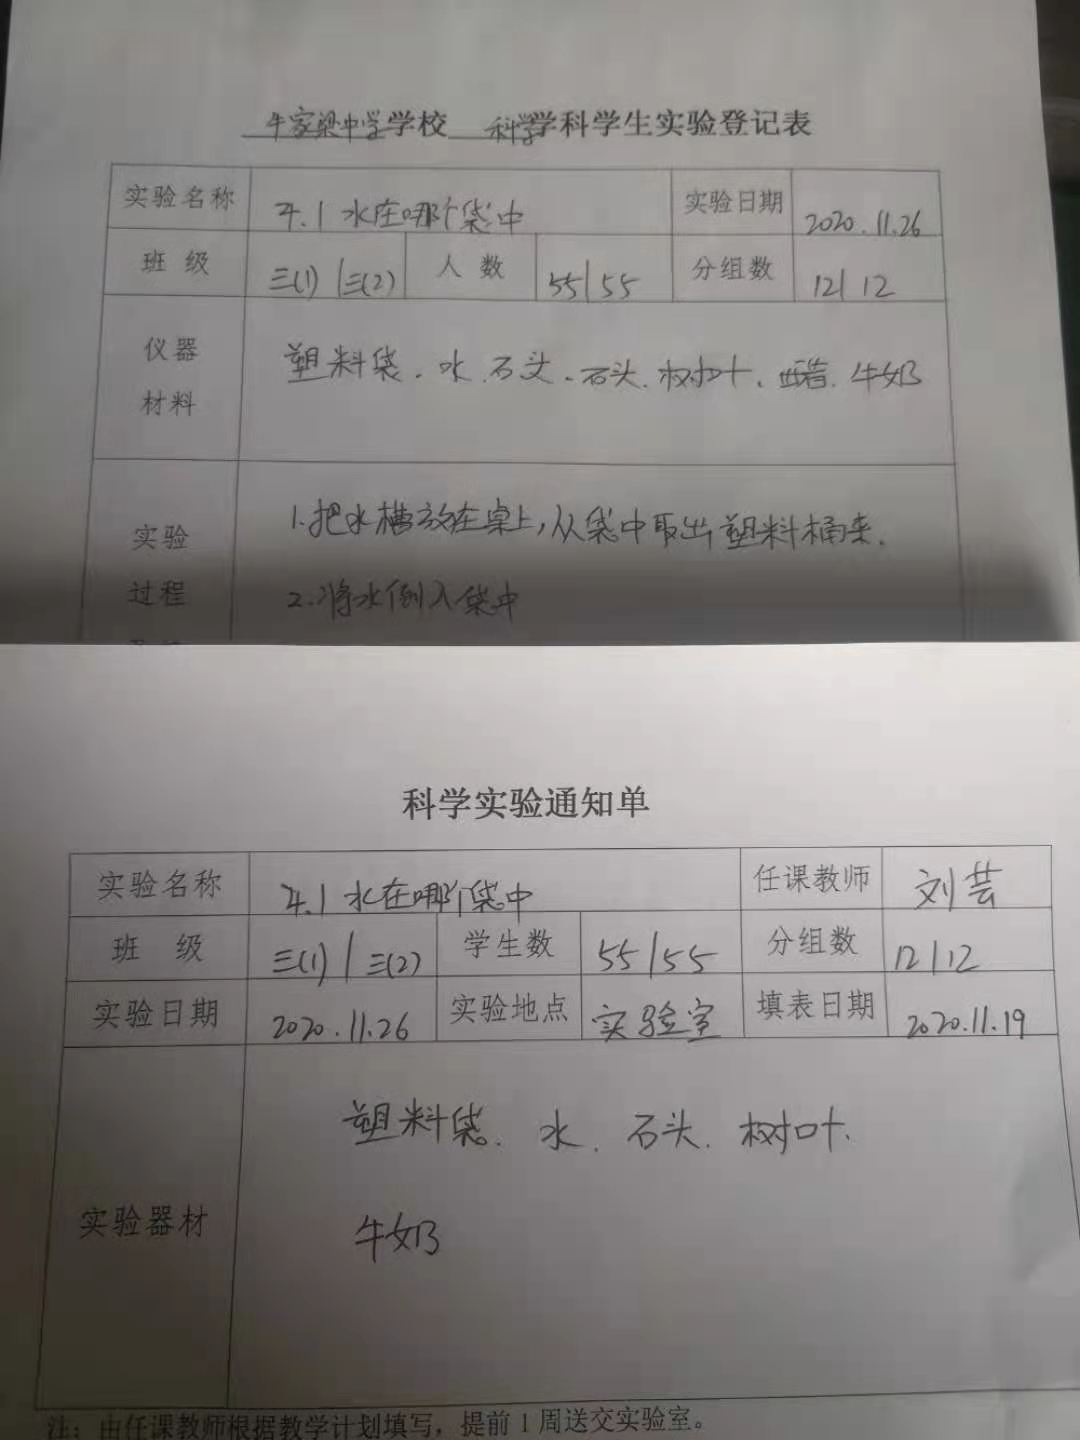 牛家梁中学学校 科学学科学生实验登记表
实验名称 4.1 水在哪个袋中 实验日期 2020.11.26
班 级 三(1) /三(2) 人 数 55/55 分组数 12/ 12
仪器 材料 塑料袋、水、石头、石头、树叶、醋、牛奶
实验 1.把水槽放在桌上,从袋中取出塑料桶来.
过程 2.将水倒入袋中
科学实验通知单
实验名称 4.1 水在哪个袋中 任课教师 刘芸
班 级 三(1) / 三(2) 学生数 55/55 分组数 12/12
实验日期 2020.11.26 实验地点 实验室 填表日期 2020.11.19
实验器材 塑料袋、水、石头、树叶、
牛奶
注:由任课教师根据教学计划填写,提前1周送交实验室。